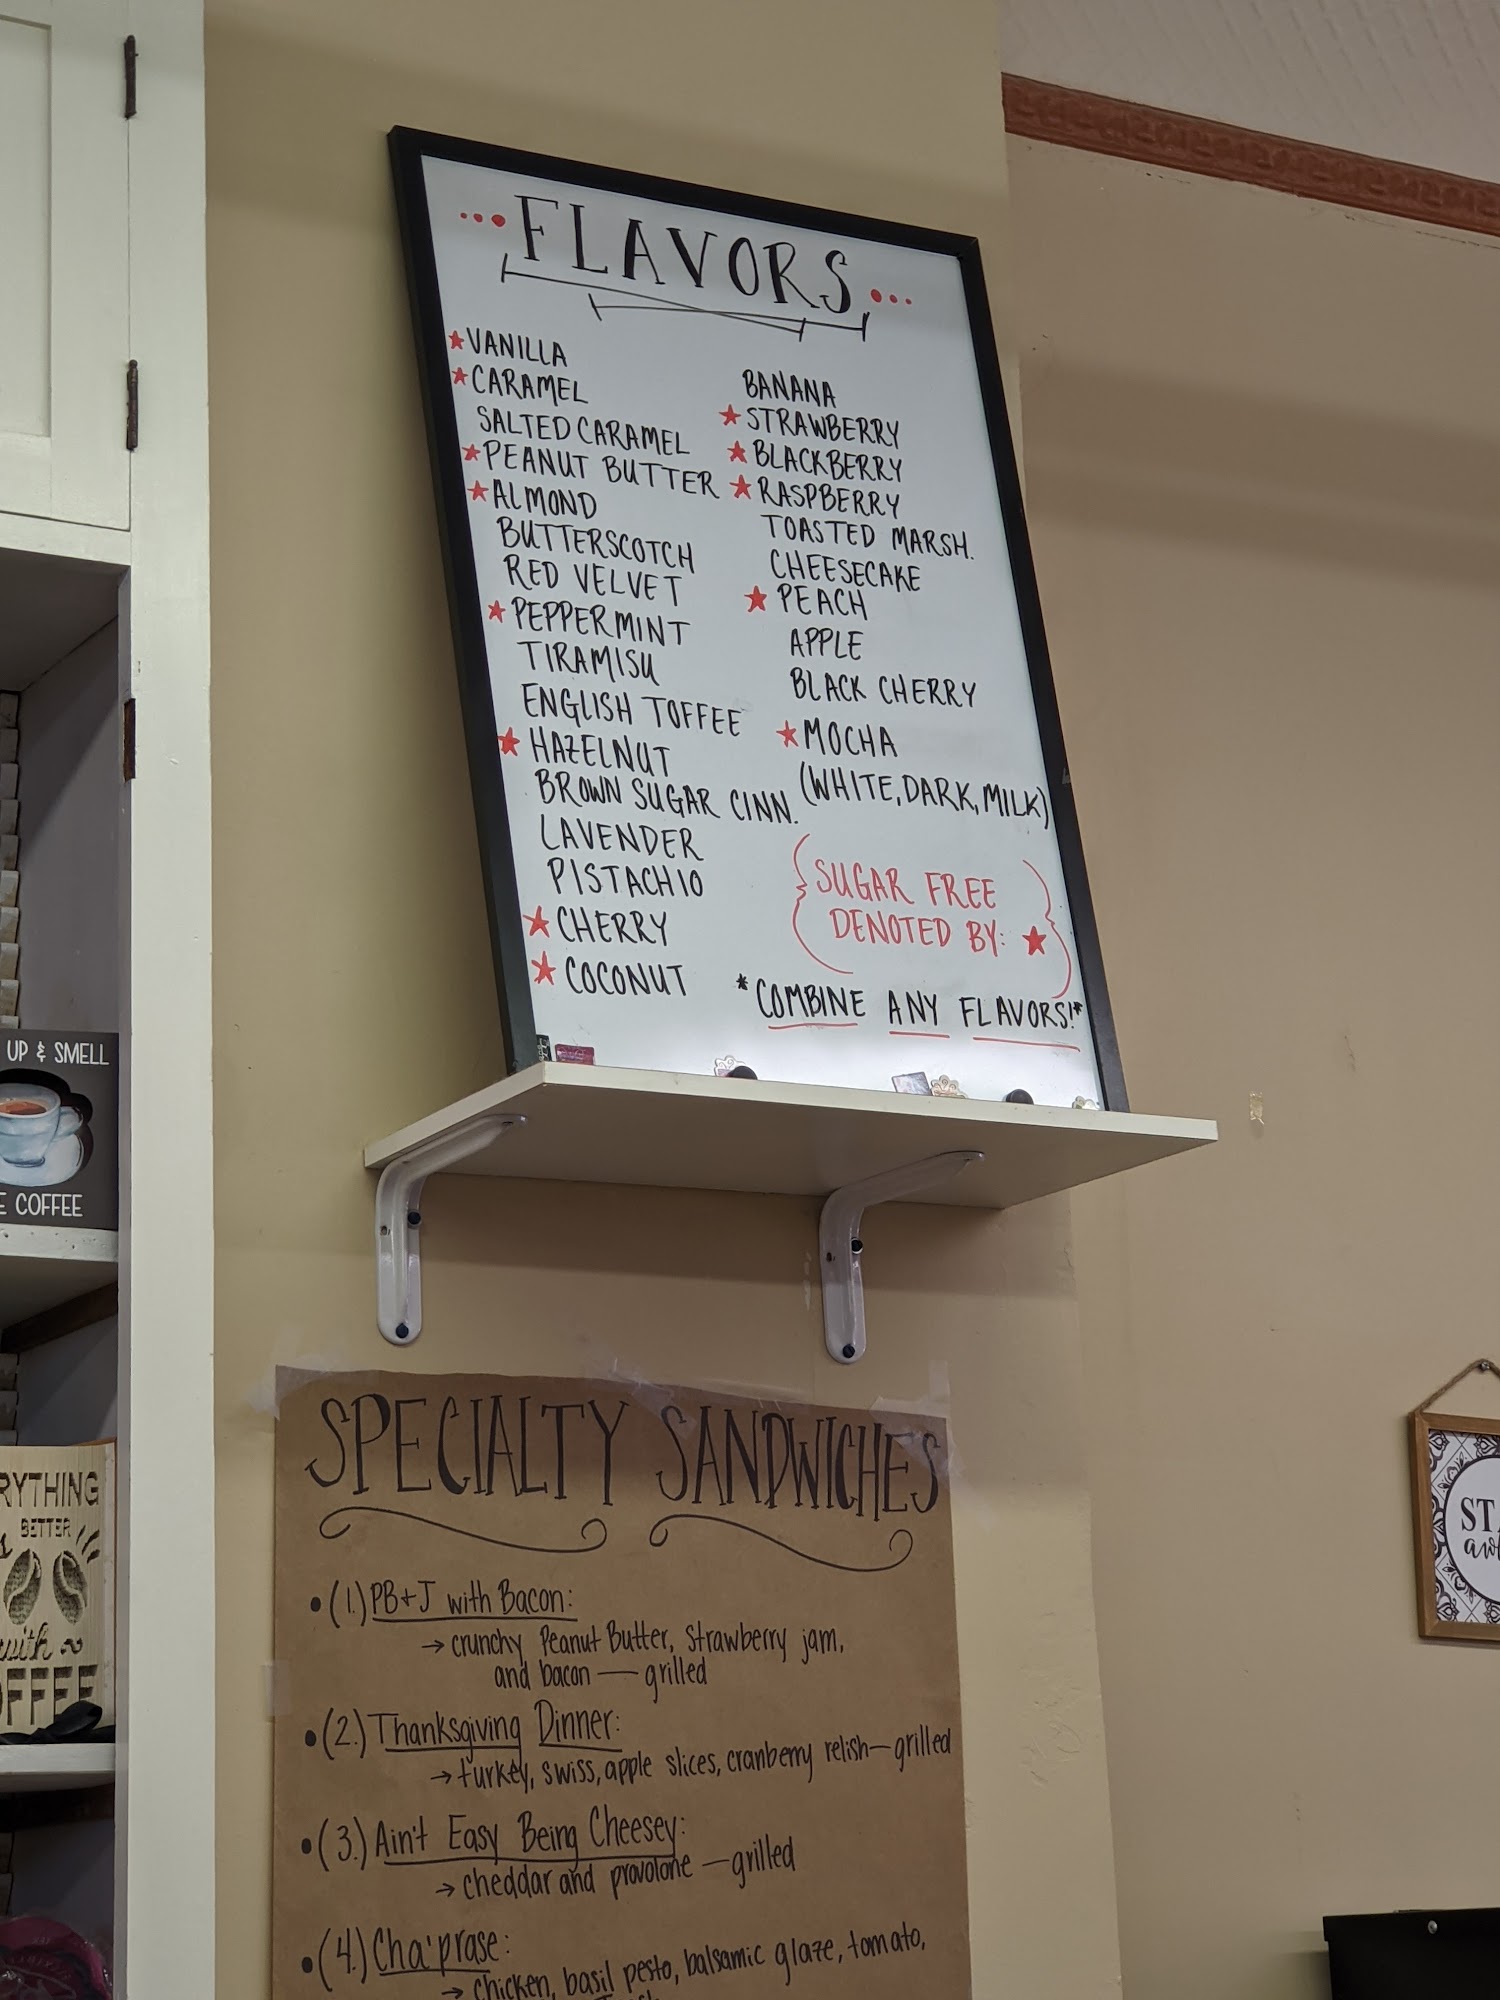 ...FLAVORS...
★VANILLA
★CARAMEL
SALTED CARAMEL
★PEANUT BUTTER
★ALMOND
BUTTERSCOTCH
RED VELVET
★PEPPERMINT
TIRAMISU
ENGLISH TOFFEE
★HAZELNUT
BROWN SUGAR CINN.
LAVENDER
PISTACHIO
★CHERRY
★COCONUT
BANANA
★STRAWBERRY
★BLACKBERRY
★RASPBERRY
TOASTED MARSH.
CHEESECAKE
★PEACH
APPLE
BLACK CHERRY
★MOCHA
(WHITE, DARK, MILK)
{SUGAR FREE
DENOTED BY: ★}
*COMBINE ANY FLAVORS!*
UP & SMELL
COFFEE
RYTHING
BETTER
with
OFFEE
SPECIALTY SANDWICHES
• (1.) PB+J with Bacon:
→ crunchy Peanut Butter, Strawberry jam,
and bacon — grilled
• (2.) Thanksgiving Dinner:
→ turkey, swiss, apple slices, cranberry relish—grilled
• (3.) Ain't Easy Being Cheesey:
→ cheddar and provolone — grilled
• (4.) Cha'prase:
→ chicken, basil pesto, balsamic glaze, tomato,